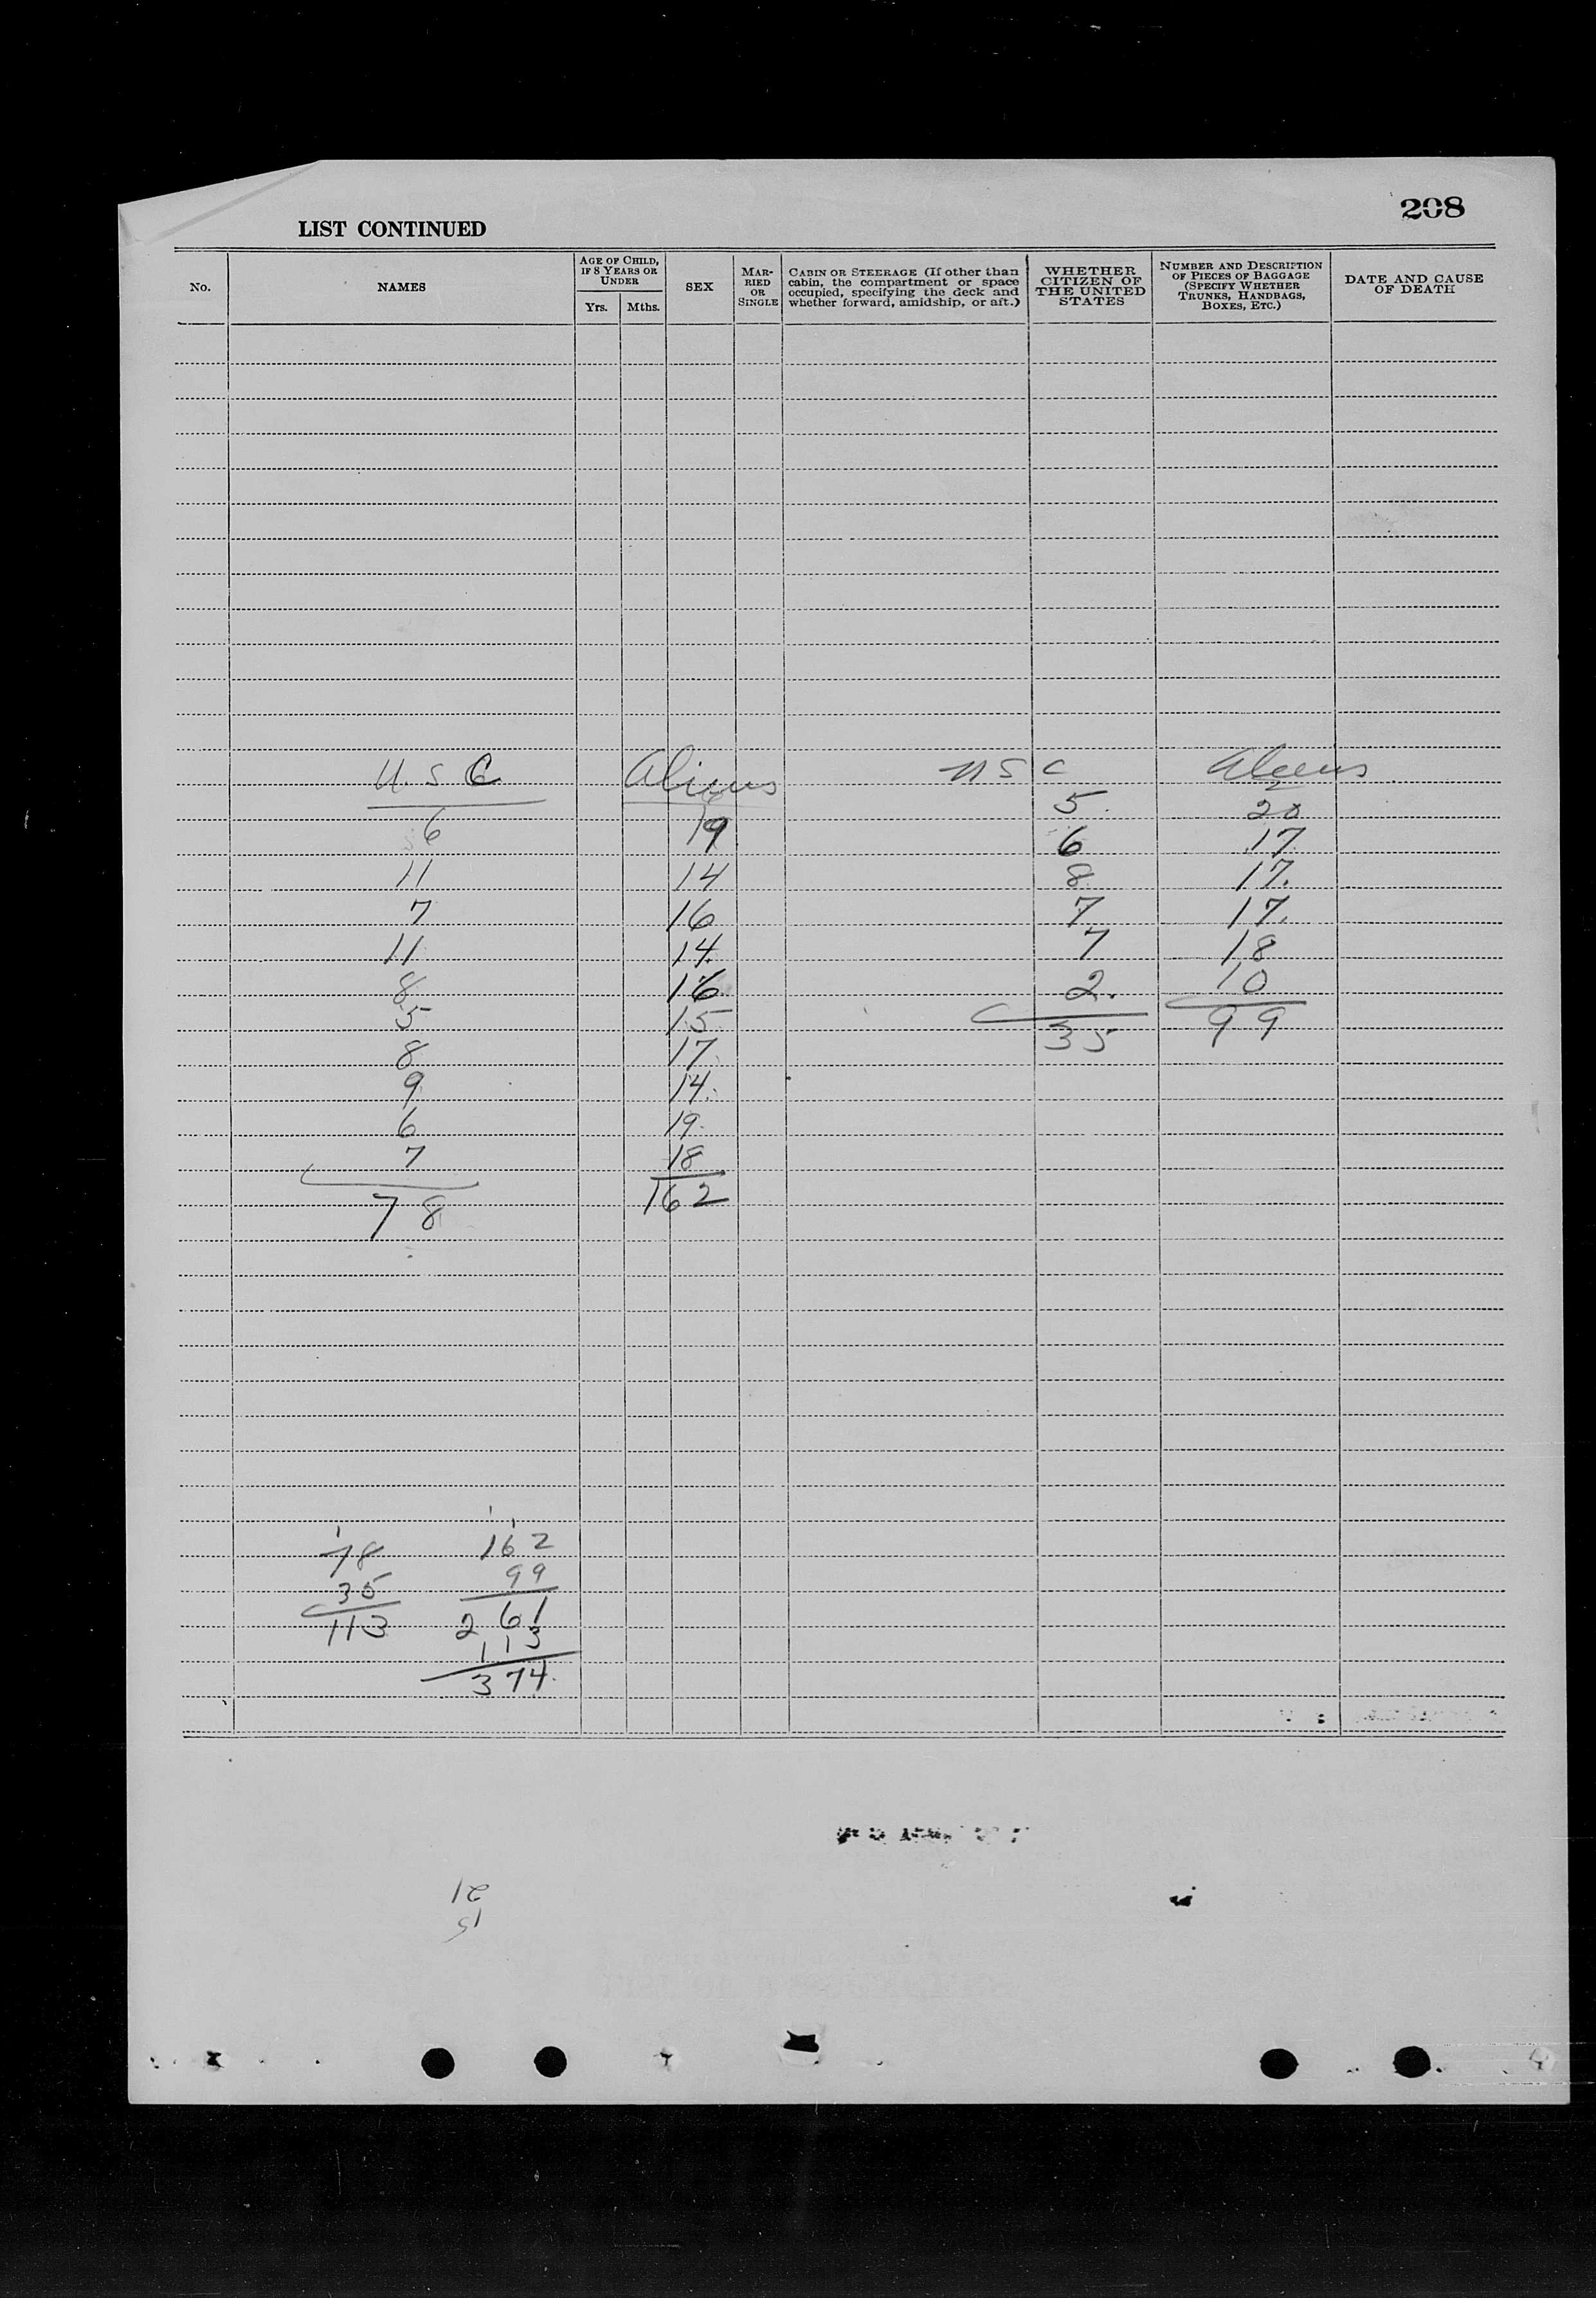 208
LIST CONTINUED
No.
NAMES
AGE OF CHILD, IF 8 YEARS OR UNDER
Yrs.
Mths.
SEX
MARRIED OR SINGLE
CABIN OR STEERAGE (If other than cabin, the compartment or space occupied, specifying the deck and whether forward, amidship, or aft.)
WHETHER CITIZEN OF THE UNITED STATES
NUMBER AND DESCRIPTION OF PIECES OF BAGGAGE (SPECIFY WHETHER TRUNKS, HANDBAGS, BOXES, ETC.)
DATE AND CAUSE OF DEATH
U.S C Aliens U S C Aliens
6 19 5. 20
11 14 6 17
7 16 8 17.
11 14. 7 17.
8 16 7 18
5 15 2. 10
8 17 35 99
9 14.
6 19.
7 18
78 162
78 162
35 99
113 261
113
374.
15
21